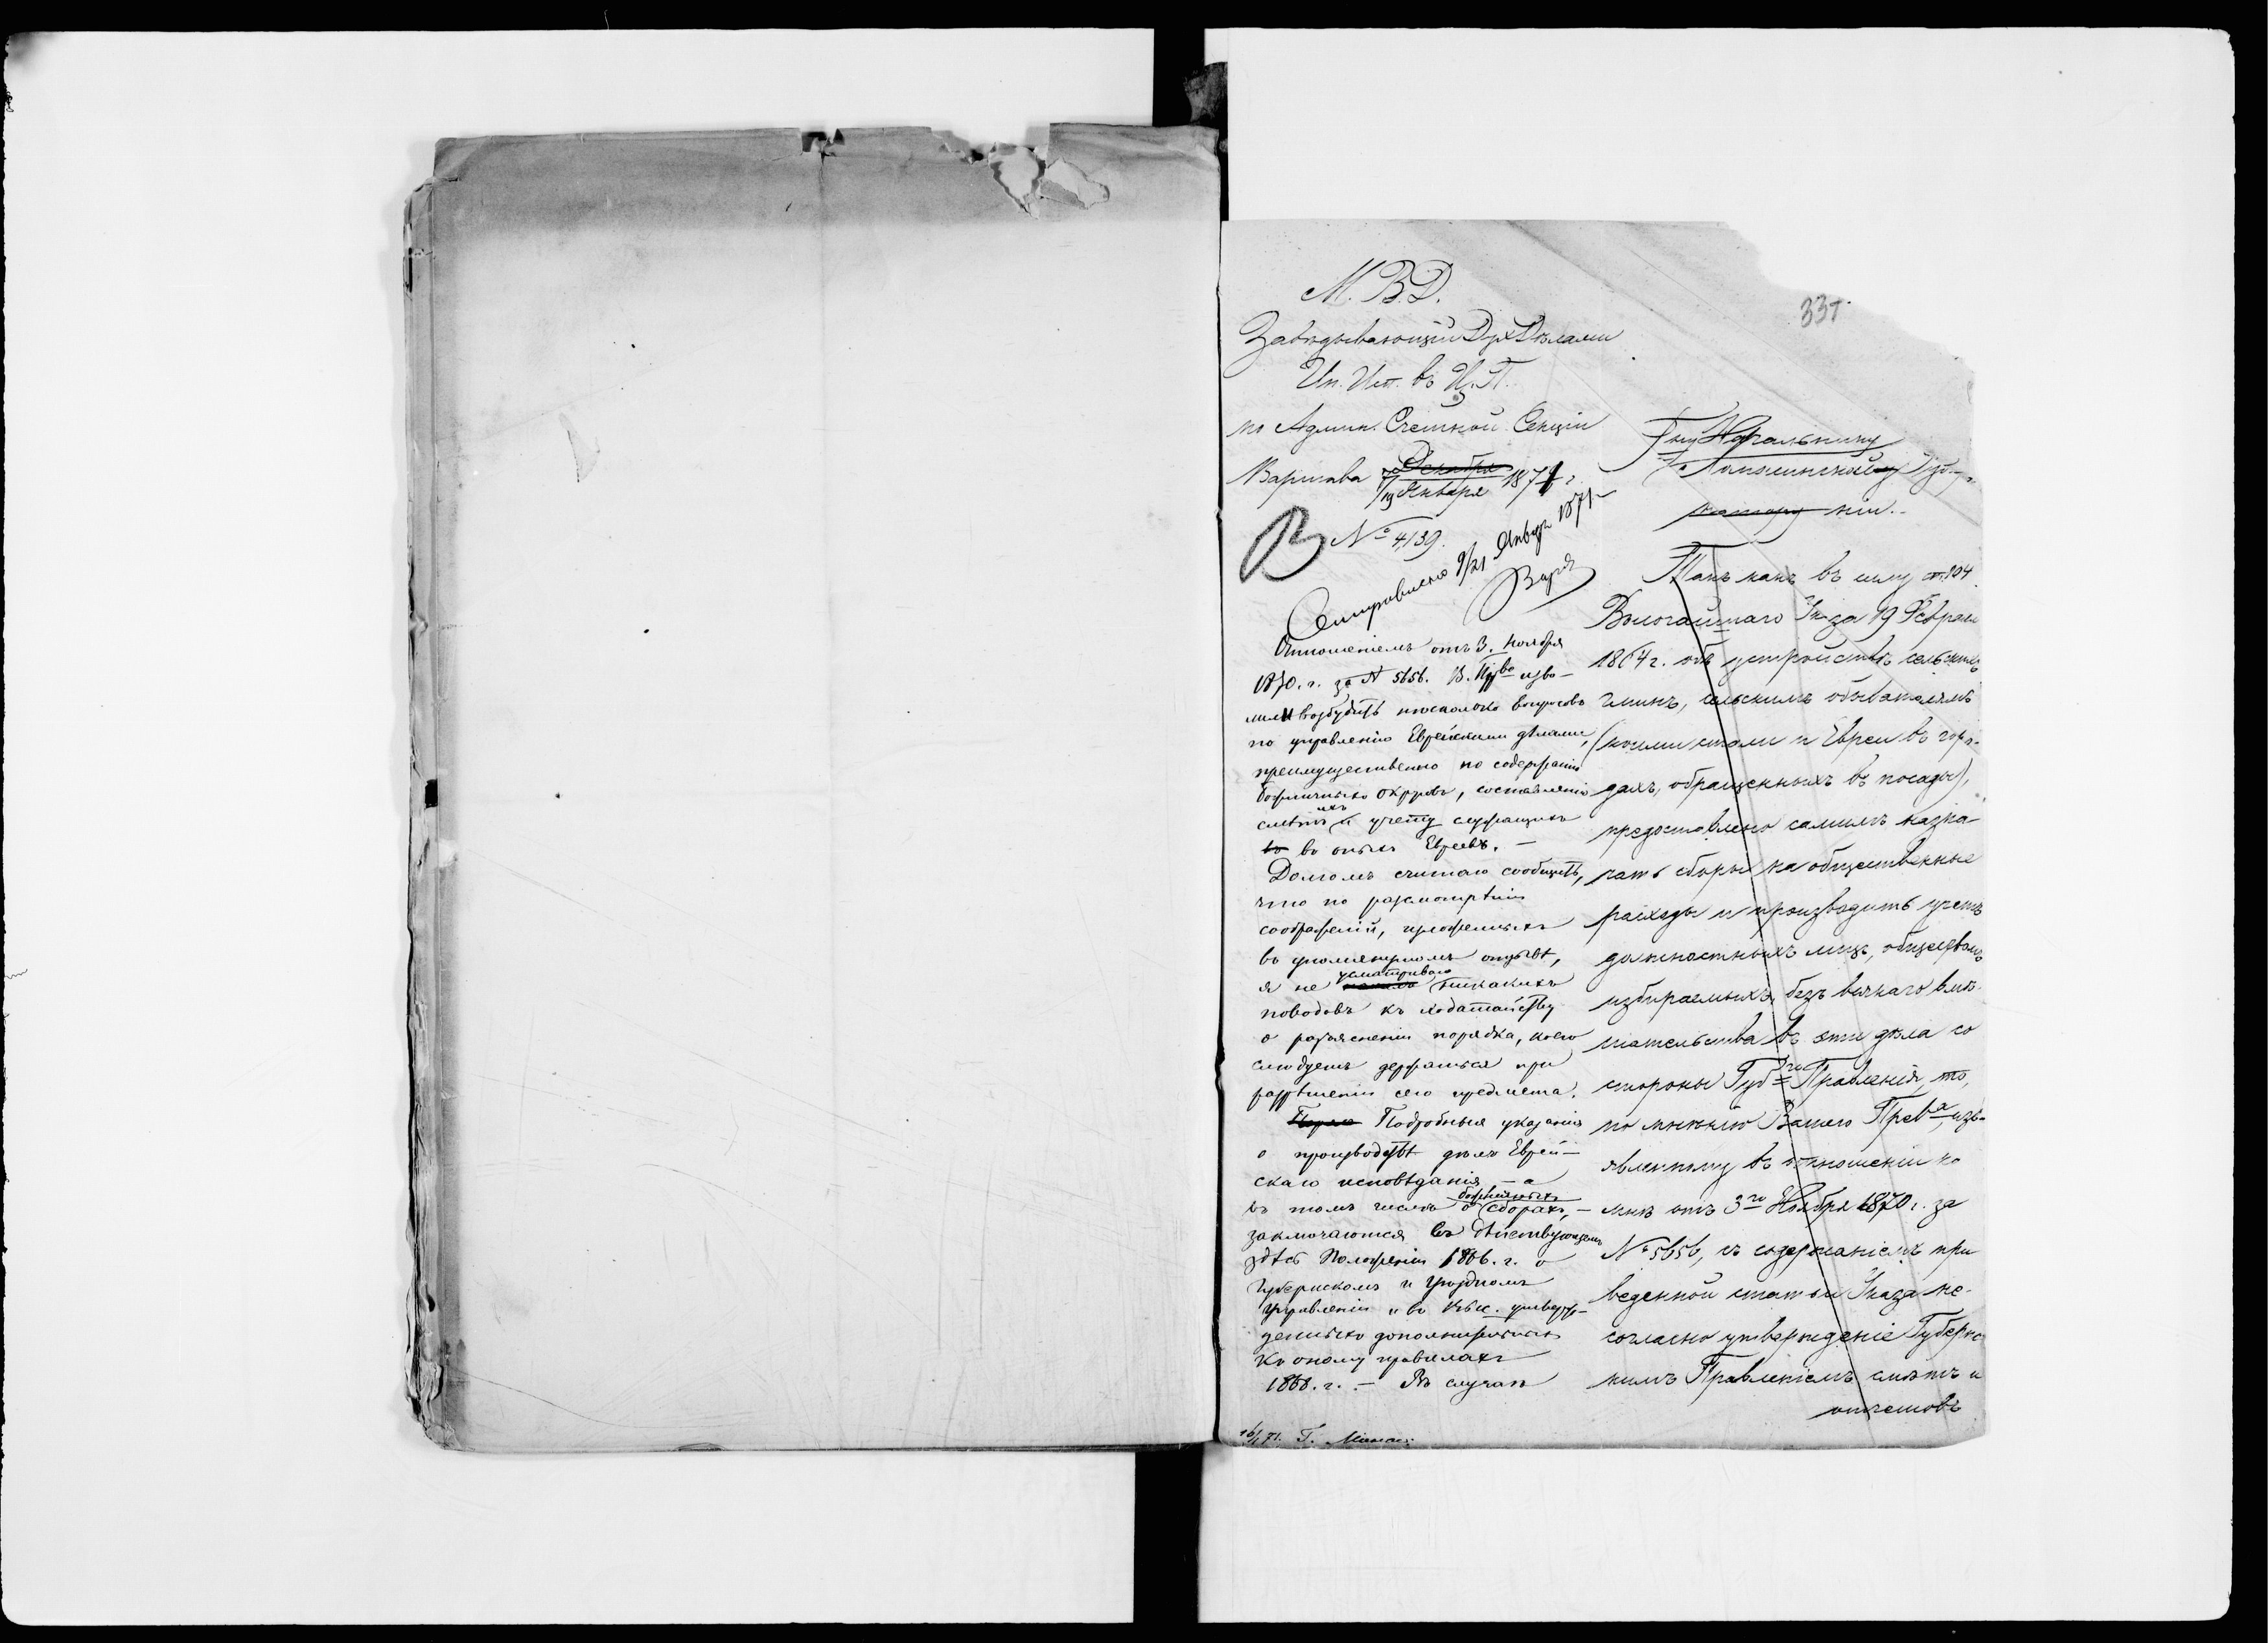 337.
М. В. Д.
Завѣдывающій Дух. Дѣлами
Ин. Исп. въ Ц. П.
по Админ. Счетной Секціи
Варшава Декабря
7/19 Января 1871 г.
№ 4139.
9/21 Января 1871
Г-ну Начальнику
Ломжинской Губер-
ніи.
Отношеніемъ отъ 3. Ноября
1870. г. за № 5656. В. Пр-во изво-
лили возбудить нѣсколько вопросовъ
по управленію Еврейскими дѣлами,
преимущественно по содержанію
божничныхъ округовъ, составленію
смѣтъ ихъ и учету служащихъ
во оныхъ Евреевъ. —
Долгомъ считаю сообщить,
что по разсмотрѣніи
соображеній, изложенныхъ
въ упомянутомъ отзывѣ,
я не усматриваю никакихъ
поводовъ къ ходатайству
о разъясненіи порядка, коего
слѣдуетъ держаться при
разрѣшеніи сего предмета.
Подробныя указанія
о производствѣ дѣлъ Еврей-
скаго исповѣданія — а
въ томъ числѣ о божничныхъ сборахъ, —
заключаются въ дѣйствующемъ
здѣсь Положеніи 1866. г. о
Губернскомъ и Уѣздномъ
Управленіи и въ Выс. утверж-
денныхъ дополнительныхъ
къ оному правилахъ
1868. г. — Въ случаѣ
16/I 71. Г.
Такъ какъ въ силу ст. 104
Высочайшаго Указа 19 Февраля
1864 г. объ устройствѣ сельскихъ
гминъ, сельскимъ обывателямъ
(коими стали и Евреи въ горо-
дахъ, обращенныхъ въ посады),
предоставлено самимъ назна-
чать сборы на общественные
расходы и производить учетъ
должностныхъ лицъ, обществомъ
избираемыхъ, безъ всякаго вмѣ-
шательства въ эти дѣла со
стороны Губ-го Правленія, то,
по мнѣнію Вашего Прев-а, изъ-
явленному въ отношеніи ко
мнѣ отъ 3го Ноября 1870 г. за
№ 5656, съ содержаніемъ при
веденной статьи Указа не-
согласно утвержденіе Губернс
кимъ Правленіемъ смѣтъ и
отчетовъ